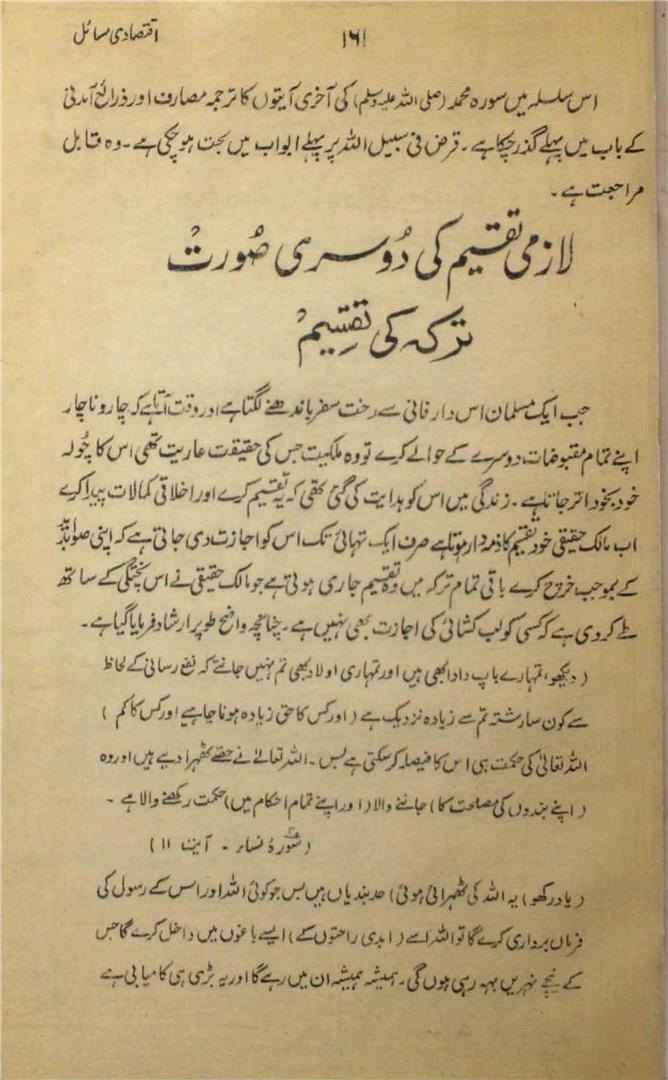 ۱۶۱
اقتصادی مسائل
اس سلسلہ میں سورہ محمد (صلی اللہ علیہ وسلم) کی آخری آیتوں کا ترجمہ مصارف اور ذرائع آمدنی
کے باب میں پہلے گذر چکا ہے۔ قرض فی سبیل اللہ پر پہلے ابواب میں بحث ہو چکی ہے۔ وہ قابل
مراجعت ہے۔
لازمی تقسیم کی دُوسری صُورت
ترکہ کی تقسِیم
جب ایک مسلمان اس دار فانی سے رخت سفر باندھنے لگتا ہے اور وقت آتا ہے کہ چار و ناچار
اپنے تمام مقبوضات دوسرے کے حوالے کرے تو وہ ملکیت جس کی حقیقت عاریت تھی اس کا چُولہ
خود بخود اتر جاتا ہے۔ زندگی میں اس کو ہدایت کی گئی تھی کہ یہ تقسیم کرے اور اخلاقی کمالات پیدا کرے
اب مالک حقیقی خود تقسیم کا ذمہ دار ہوتا ہے صرف ایک تہائی تک اس کو اجازت دی جاتی ہے کہ اپنی صوابدید
کے بموجب خرچ کرے باقی تمام ترکہ میں وہ تقسیم جاری ہوتی ہے جو مالک حقیقی نے اس پختگی کے ساتھ
طے کر دی ہے کہ کسی کو لب کشائی کی اجازت بھی نہیں ہے۔ چنانچہ واضح طور پر ارشاد فرمایا گیا ہے۔
(دیکھو، تمہارے باپ دادا بھی ہیں اور تمہاری اولاد بھی تم نہیں جانتے کہ نفع رسانی کے لحاظ
سے کون سا رشتہ تم سے زیادہ نزدیک ہے (اور کس کا حق زیادہ ہونا چاہیے اور کس کا کم)
اللہ تعالیٰ کی حکمت ہی اس کا فیصلہ کر سکتی ہے بس۔ اللہ تعالےٰ نے حصے ٹھہرا دیے ہیں اور وہ
(اپنے بندوں کی مصلحت کا) جاننے والا (اور اپنے تمام احکام میں) حکمت رکھنے والا ہے۔
(سُورۂ نساء۔ آیت ۱۱)
(یاد رکھو) یہ اللہ کی ٹھہرائی ہوئی) حد بندیاں ہیں بس جو کوئی اللہ اور اس کے رسول کی
فرماں برداری کرے گا تو اللہ اسے (ابدی راحتوں کے) ایسے باغوں میں داخل کرے گا جس
کے نیچے نہریں بہہ رہی ہوں گی۔ ہمیشہ ہمیشہ ان میں رہے گا اور یہ بڑی ہی کامیابی ہے